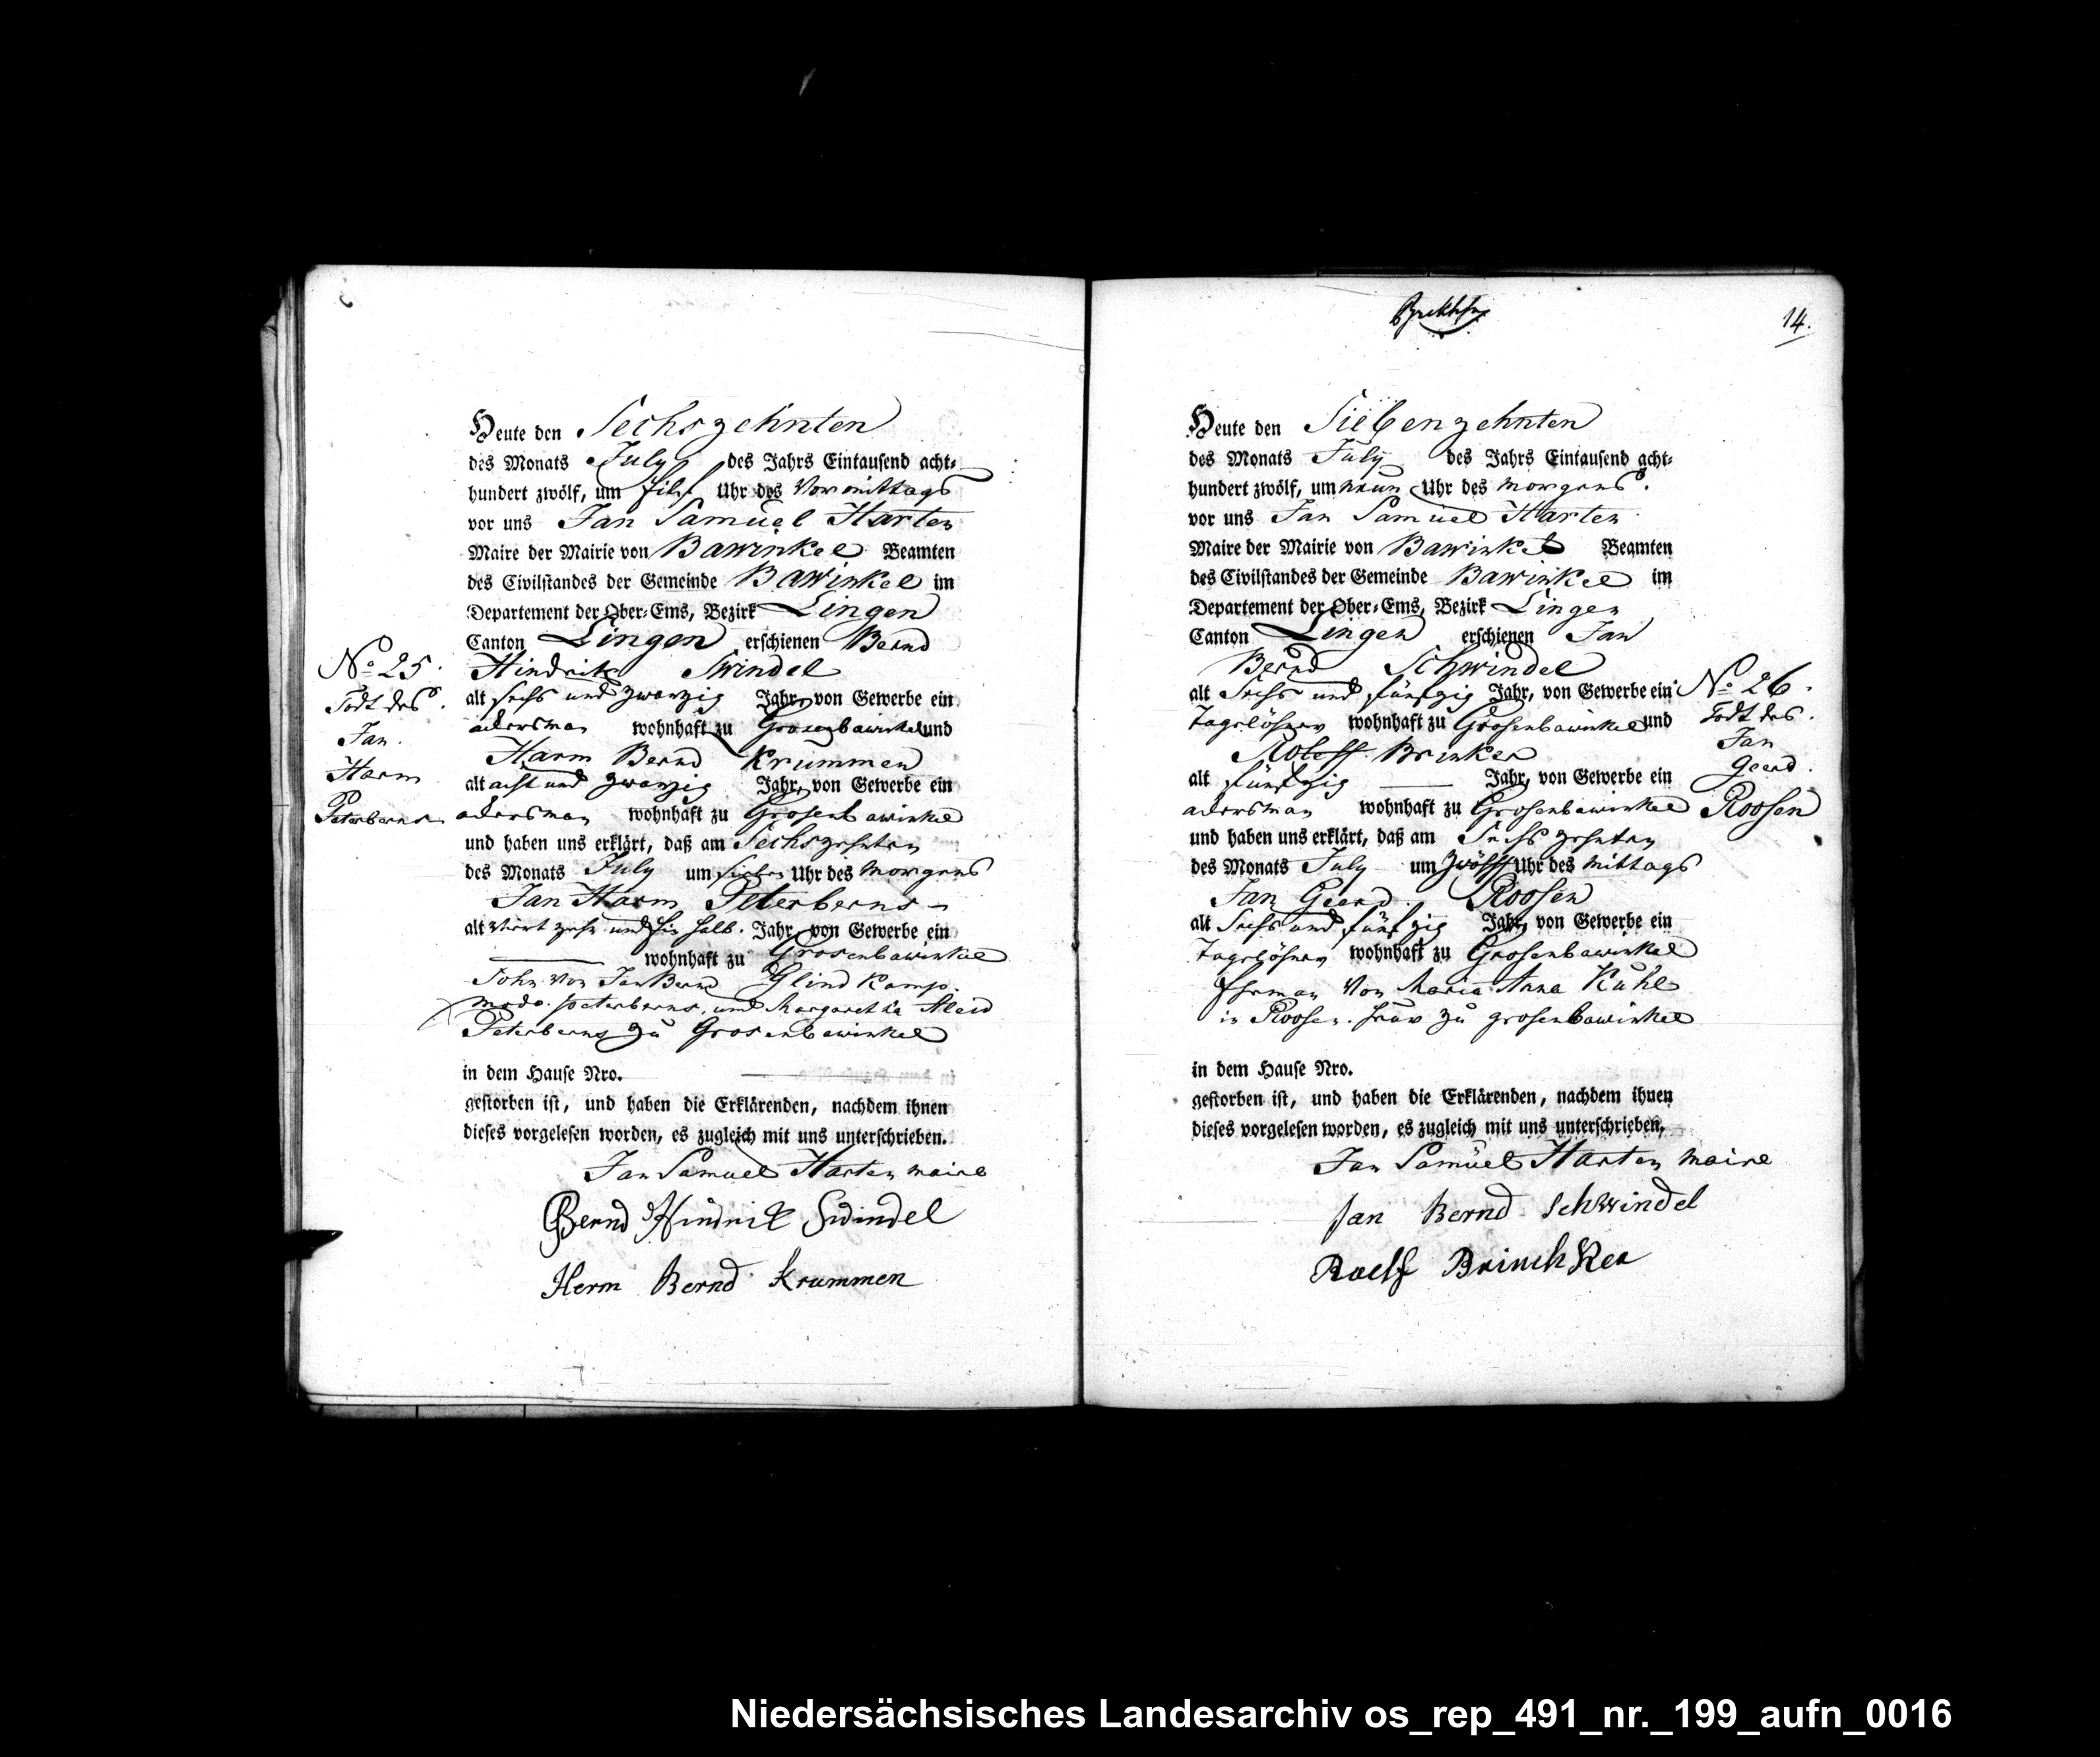 Heute den Sechszehnten
des Monats July des Jahrs Eintausend acht-
hundert zwölf, um Uhr des Vormittags
vor uns Jan Samuel Harten
Maire der Mairie von Bawinkel Beamten
des Civilstandes der Gemeinde Bawinkel im
Departement der Ober-Ems, Bezirk Lingen
Canton Lingen erschienen Bernd
No 25.
Todt des
Jan.
Harm
Peterberns
Hindrik Swindel
alt sechs und zwanzig Jahr, von Gewerbe ein
ackersman wohnhaft zu Grosenbawinkel und
Harm Bernd Krummen
alt acht und zwanzig Jahr, von Gewerbe ein
ackersman wohnhaft zu Grosenbawinkel
und haben uns erklärt, daß am Sechszehnten
des Monats July um sieben Uhr des Morgens
Jan Harm Peterberns
alt vierzehn und ein halb. Jahr, von Gewerbe ein
wohnhaft zu Grosenbawinkel
Sohn von Jan Bernd Glind Kamp.
modo. peterberns, und Margaretha Aleid
Peterberns zu Grosenbawinkel
in dem Hause Nro.
gestorben ist, und haben die Erklärenden, nachdem ihnen
dieses vorgelesen worden, es zugleich mit uns unterschrieben.
Jan Samuel Harten maire
Bernd Hindrik Swindel
Herm Bernd Krummen
14.
Heute den Siebenzehnten
des Monats July des Jahrs Eintausend acht-
hundert zwölf, um neun Uhr des morgens.
vor uns Jan Samuel Harten
Maire der Mairie von Bawinkel Beamten
des Civilstandes der Gemeinde Bawinkel im
Departement der Ober-Ems, Bezirk Lingen
Canton Lingen erschienen Jan
Bernd Schwindel
alt Sechs und fünfzig Jahr, von Gewerbe ein
Tagelöhner wohnhaft zu Grosenbawinkel und
Brinker
alt fünfzig Jahr, von Gewerbe ein
ackersman wohnhaft zu Grosenbawinkel
und haben uns erklärt, daß am Sechszehnten
des Monats July um zwölff Uhr des Mittags
Jan Geerd Roosen
alt Sechs und fünfzig Jahr, von Gewerbe ein
Tagelöhner wohnhaft zu Grosenbawinkel
Ehrman von Maria Anna Kuhl
in Roosen. Haus zu grosenbawinkel
No 26.
Todt des.
Jan
Geerd.
Roosen
in dem Hause Nro.
gestorben ist, und haben die Erklärenden, nachdem ihnen
dieses vorgelesen worden, es zugleich mit uns unterschrieben.
Jan Samuel Harten Maire
Jan Bernd Schwindel
Roelf Brinchker
Niedersächsisches Landesarchiv os_rep_491_nr._199_aufn_0016